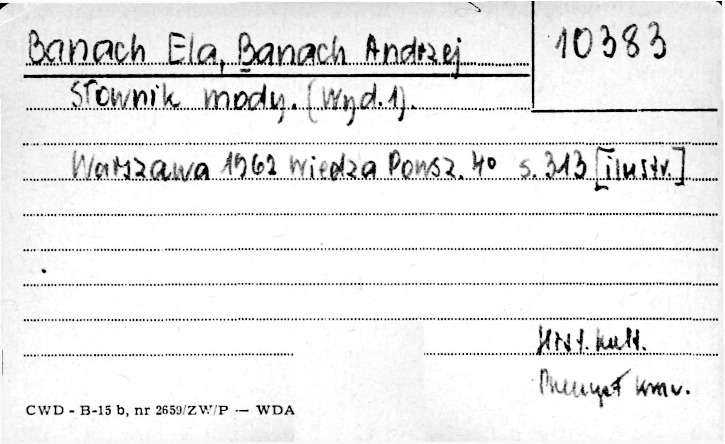 Banach Ela, Banach Andrzej
10383
Słownik mody. (Wyd. 1).
Warszawa 1962 Wiedza Powsz. 4° s. 313 [ilustr.]
Hist. kult.
Przemysł kraw.
CWD - B-15 b, nr 2659/ZW/P — WDA